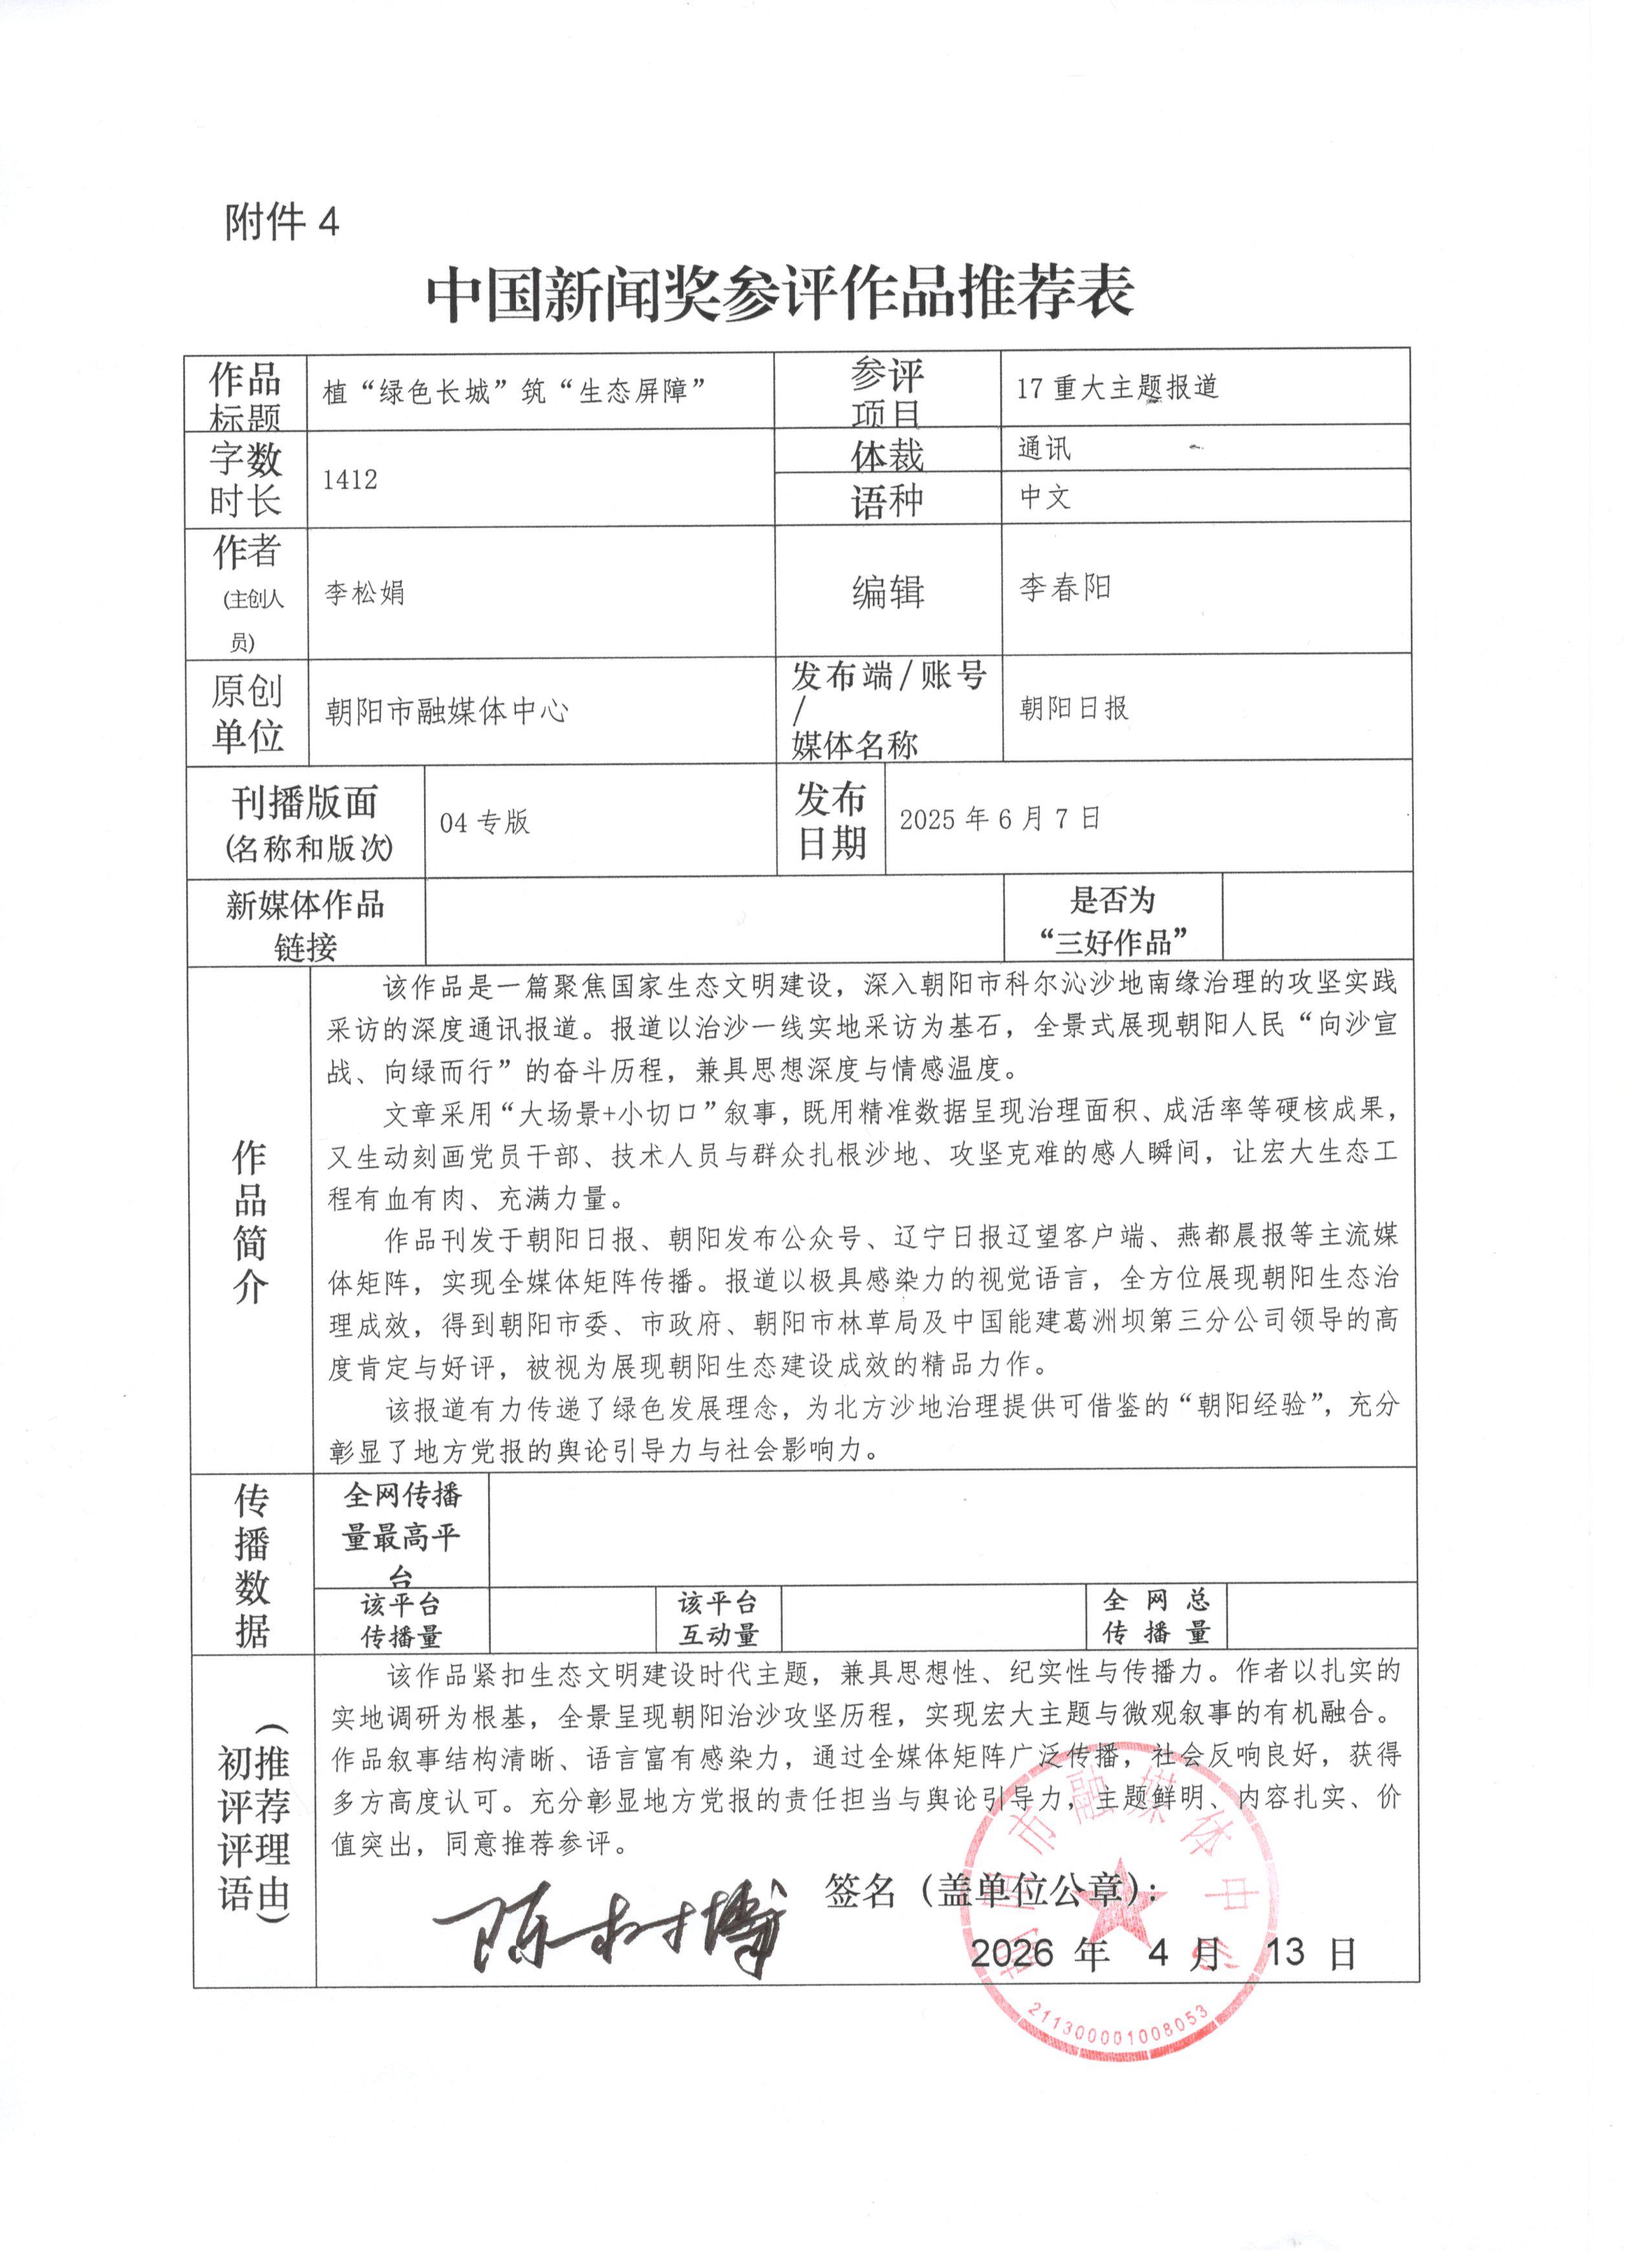 附件 4
中国新闻奖参评作品推荐表
作品
标题
植“绿色长城”筑“生态屏障”
参评
项目
17 重大主题报道
字数
时长
1412
体裁
通讯
语种
中文
作者
(主创人
员)
李松娟
编辑
李春阳
原创
单位
朝阳市融媒体中心
发布端/账号
/
媒体名称
朝阳日报
刊播版面
(名称和版次)
04 专版
发布
日期
2025 年 6 月 7 日
新媒体作品
链接
是否为
“三好作品”
作品简介
该作品是一篇聚焦国家生态文明建设，深入朝阳市科尔沁沙地南缘治理的攻坚实践
采访的深度通讯报道。报道以治沙一线实地采访为基石，全景式展现朝阳人民“向沙宣
战、向绿而行”的奋斗历程，兼具思想深度与情感温度。
文章采用“大场景+小切口”叙事，既用精准数据呈现治理面积、成活率等硬核成果，
又生动刻画党员干部、技术人员与群众扎根沙地、攻坚克难的感人瞬间，让宏大生态工
程有血有肉、充满力量。
作品刊发于朝阳日报、朝阳发布公众号、辽宁日报辽望客户端、燕都晨报等主流媒
体矩阵，实现全媒体矩阵传播。报道以极具感染力的视觉语言，全方位展现朝阳生态治
理成效，得到朝阳市委、市政府、朝阳市林草局及中国能建葛洲坝第三分公司领导的高
度肯定与好评，被视为展现朝阳生态建设成效的精品力作。
该报道有力传递了绿色发展理念，为北方沙地治理提供可借鉴的“朝阳经验”，充分
彰显了地方党报的舆论引导力与社会影响力。
传播数据
全网传播
量最高平
台
该平台
传播量
该平台
互动量
全网总
传播量
初评评语
（推荐理由）
该作品紧扣生态文明建设时代主题，兼具思想性、纪实性与传播力。作者以扎实的
实地调研为根基，全景呈现朝阳治沙攻坚历程，实现宏大主题与微观叙事的有机融合。
作品叙事结构清晰、语言富有感染力，通过全媒体矩阵广泛传播，社会反响良好，获得
多方高度认可。充分彰显地方党报的责任担当与舆论引导力，主题鲜明、内容扎实、价
值突出，同意推荐参评。
签名（盖单位公章）：
陈树博
2026 年 4 月 13 日
朝阳市融媒体中心
2113000001008053